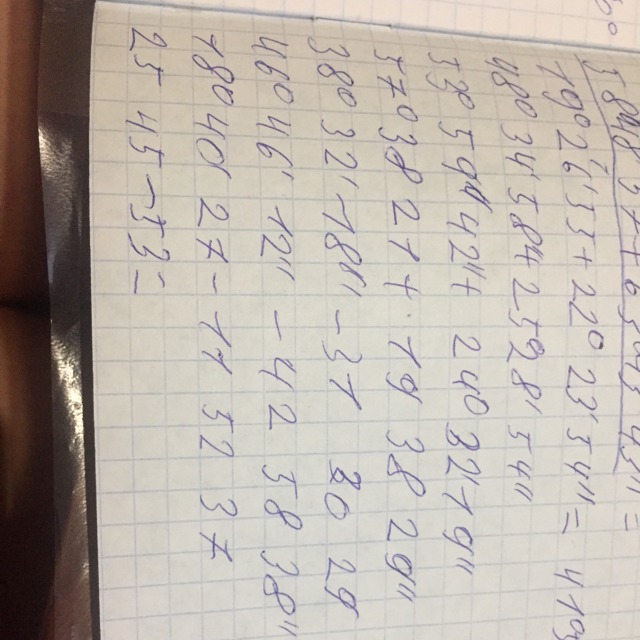 19° 26' 55 + 22° 23' 54" = 41°
48° 34' 58" + 25 28' 54"
55° 59" 42" + 240 32' 19"
57° 38 21 + 19 38 29"
38° 32' 18" - 31 20 29
46° 46' 12" - 42 58 38"
78° 40' 27 - 11 52 37
25 45 - 53 =